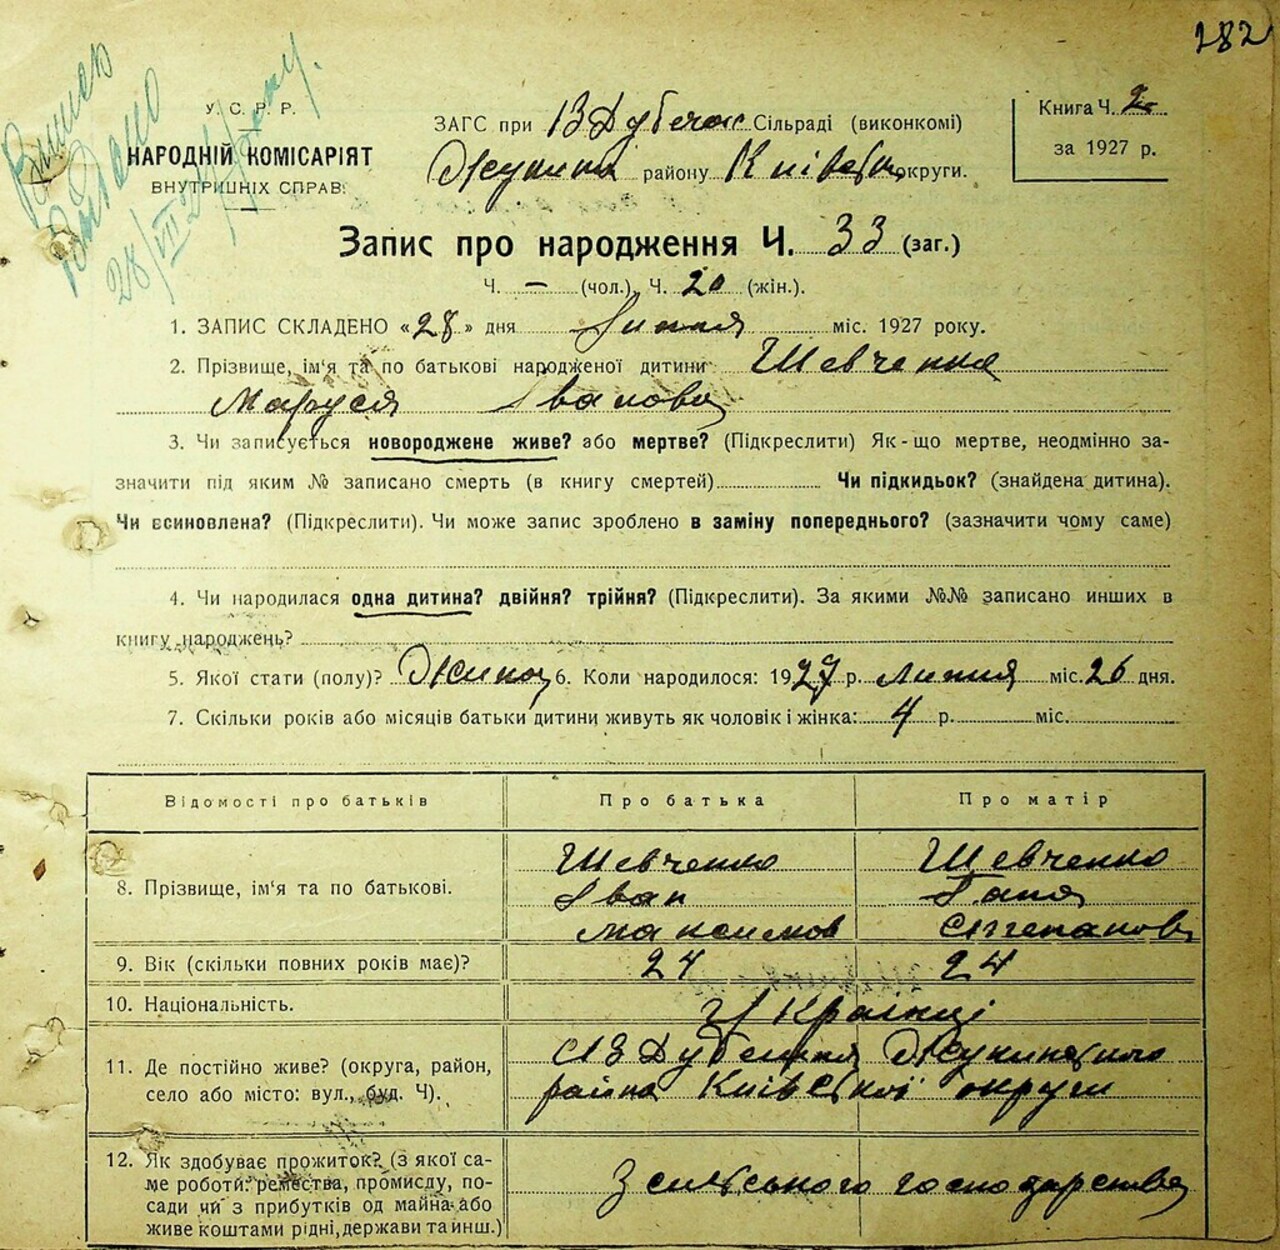 282
Виписъ
Видано
28/VII
У. С. Р. Р.
НАРОДНІЙ КОМІСАРІЯТ
ВНУТРИШНІХ СПРАВ.
ЗАГС при Сільраді (виконкомі)
району Київськ округи.
Книга Ч. 2
за 1927 р.
Запис про народження Ч. 33 (заг.)
Ч. — (чол.), Ч. 20 (жін.).
1. ЗАПИС СКЛАДЕНО «28» дня Липня міс. 1927 року.
2. Прізвище, ім'я та по батькові народженої дитини Шевченко
Маруся Іванова
3. Чи записується новороджене живе? або мертве? (Підкреслити) Як-що мертве, неодмінно за-
значити під яким № записано смерть (в книгу смертей) Чи підкидьок? (знайдена дитина).
Чи всиновлена? (Підкреслити). Чи може запис зроблено в заміну попереднього? (зазначити чому саме)
4. Чи народилася одна дитина? двійня? трійня? (Підкреслити). За якими №№ записано инших в
книгу народжень?
5. Якої стати (полу)? 6. Коли народилося: 1927 р. липня міс. 26 дня.
7. Скільки років або місяців батьки дитини живуть як чоловік і жінка: 4 р. міс.
Відомості про батьків Про батька Про матір
8. Прізвище, ім'я та по батькові. Шевченко Шевченко
Іван Ганя
Максимов Степанов
9. Вік (скільки повних років має)? 24 24
10. Національність. Українці
11. Де постійно живе? (округа, район, Жукинського
село або місто: вул., буд. Ч). района Київської округи
12. Як здобуває прожиток? (з якої са-
ме роботи: ремества, промислу, по- З сільського господарства
сади чи з прибутків од майна або
живе коштами рідні, держави та инш.)